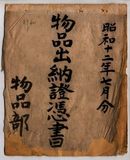 昭和十二年七月分
物品出納證憑書
物品部